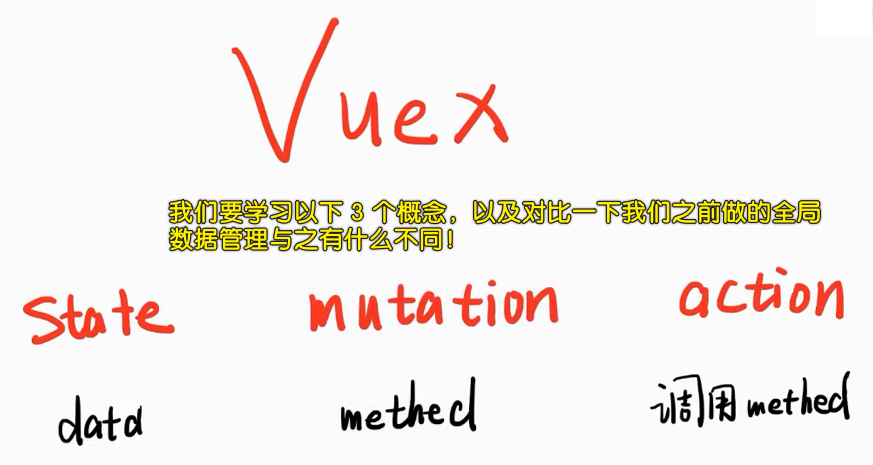 Vuex
我们要学习以下 3 个概念，以及对比一下我们之前做的全局
数据管理与之有什么不同！
State mutation action
data methed 调用 methed